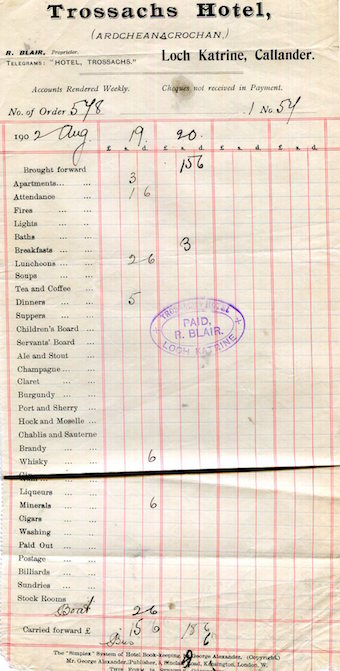 Trossachs Hotel,
(ARDCHEANACROCHAN.)
R. BLAIR, Proprietor.
TELEGRAMS: "HOTEL, TROSSACHS."
Loch Katrine, Callander.
Accounts Rendered Weekly. Cheques not received in Payment.
No. of Order 548 No. 54
1902 Aug 19. 20.
£ s d £ s d £ s d £ s d
Brought forward 15 6
Apartments... 3
Attendance 1 6
Fires
Lights
Baths
Breakfasts 3
Luncheons 2 6
Soups
Tea and Coffee
Dinners 5
Suppers
Children's Board
Servants' Board
Ale and Stout
Champagne
Claret
Burgundy
Port and Sherry
Hock and Moselle
Chablis and Sauterne
Brandy
Whisky 6
Liqueurs
Minerals 6
Cigars
Washing
Paid Out
Postage
Billiards
Sundries
Stock Rooms
Boat 2 6
Carried forward £ 15 6 18 6
Bus 6
The "Simplex" System of Hotel Book-keeping, George Alexander. (Copyright.)
Mr. George Alexander, Publisher, Kensington, London, W.
TROSSACHS HOTEL
PAID,
R. BLAIR.
LOCH KATRINE